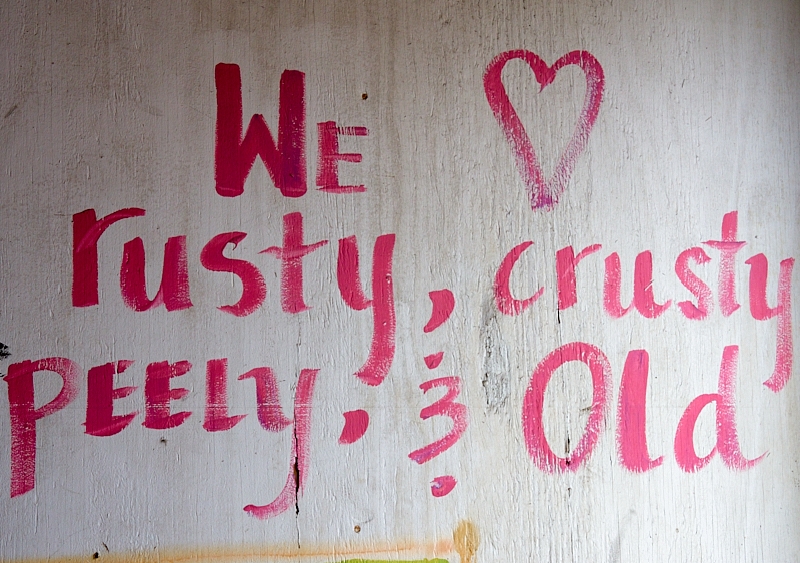 WE ♡
rusty, crusty
PEELY, & Old